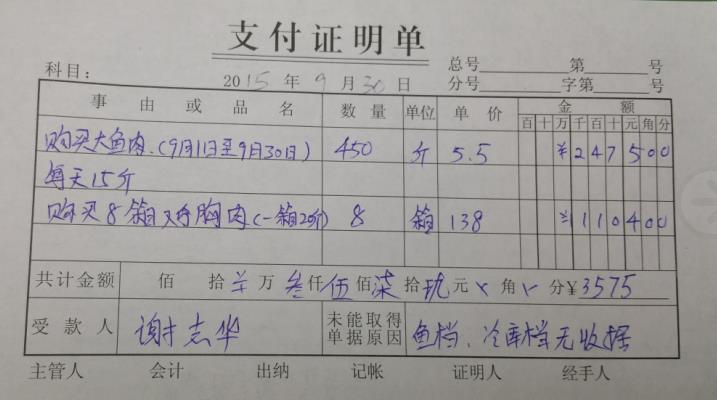 支付证明单
总号 第 号
科目: 2015年9月30日 分号 字第 号
事由或品名 数量 单位 单价 金额
百十万千百十元角分
购买大鱼肉.(9月1日至9月30日) 450 斤 5.5 ¥247500
每天15斤
购买8箱鸡胸肉(一箱20斤) 8 箱 138 ¥110400
共计金额 佰 拾 万 叁仟伍佰柒拾玖元 角 分¥3575
受款人 谢志华 未能取得单据原因 鱼档、冷库档无收据
主管人 会计 出纳 记帐 证明人 经手人